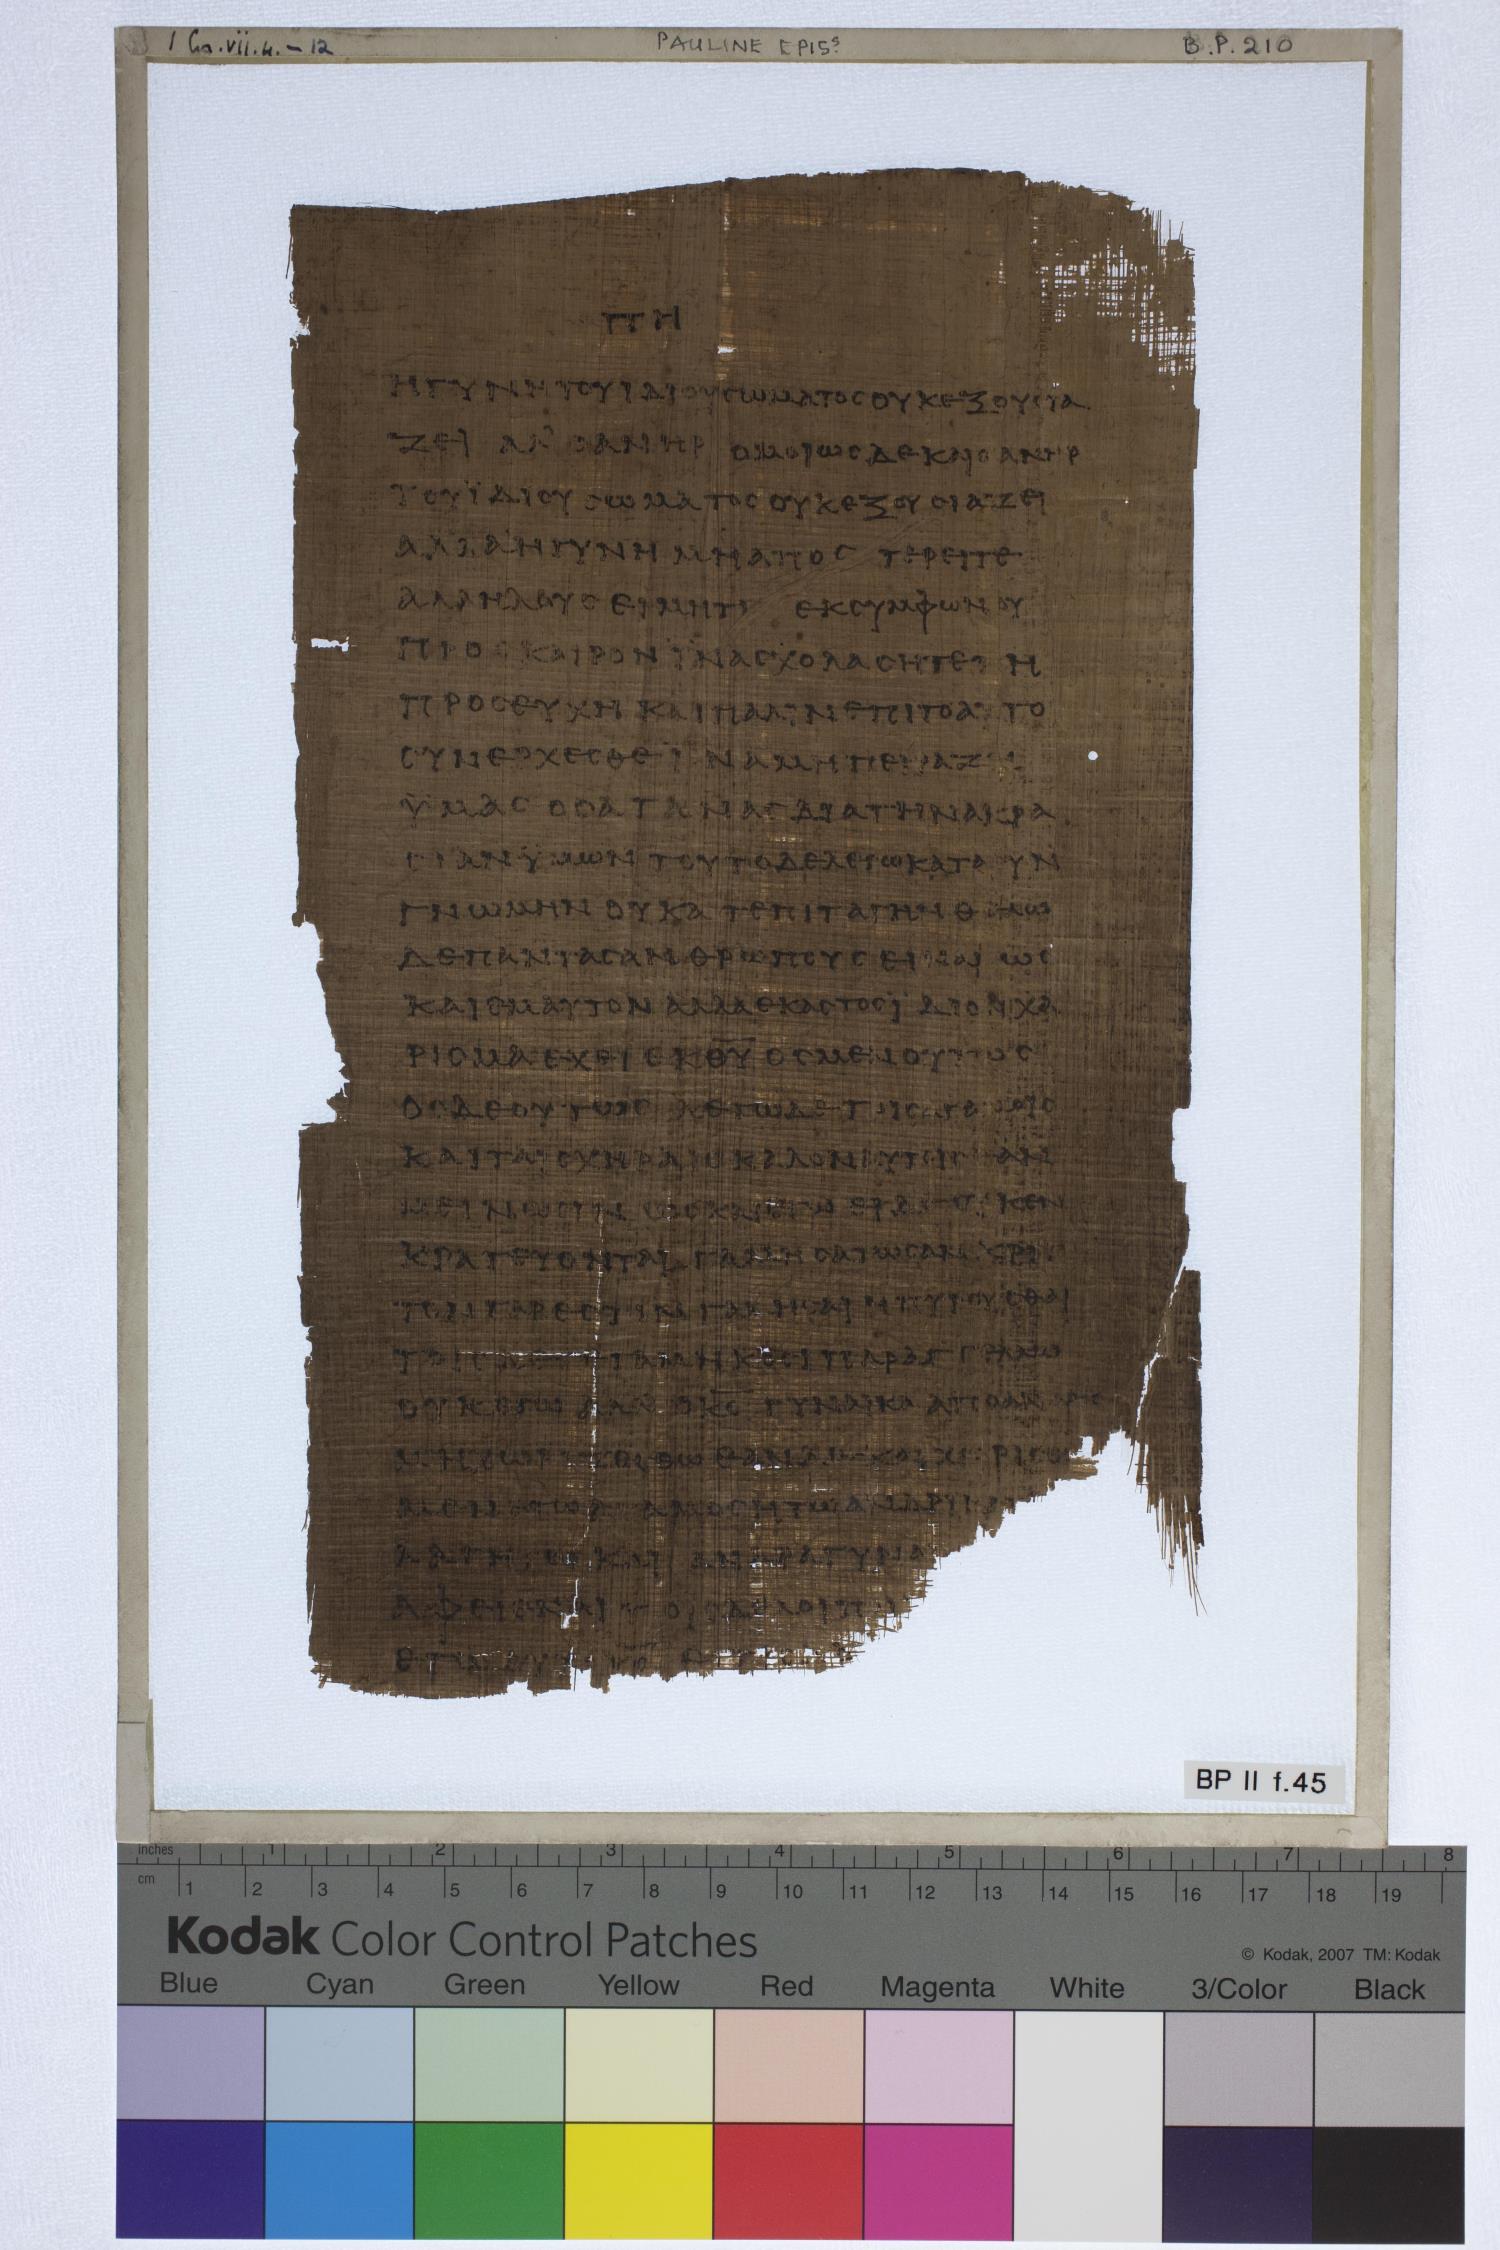 1 Co. vii. 4. – 12
PAULINE EPISˢ
B.P. 210
ΠΗ
ΗΓΥΝΗΤΟΥΙΔΙΟΥΣΩΜΑΤΟΣΟΥΚΕΞΟΥΣΙΑ
ΖΕΙ ΑΛ ΟΑΝΗΡ ΟΜΟΙΩΣΔΕΚΑΙΟΑΝΗΡ
ΤΟΥΪΔΙΟΥ ΣΩΜΑΤΟΣ ΟΥΚΕΞΟΥΣΙΑΖΕΙ
ΑΛΛΑΗΓΥΝΗ ΜΗΑΠΟΣΤΕΡΕΙΤΕ
ΑΛΛΗΛΟΥΣ ΕΙΜΗΤΙ ΕΚΣΥΜΦΩΝΟΥ
ΠΡΟΣΚΑΙΡΟΝ ΪΝΑΣΧΟΛΑΣΗΤΕΤΗ
ΠΡΟΣΕΥΧΗ ΚΑΙΠΑΛΙΝΕΠΙΤΟΑΥΤΟ
ΣΥΝΕΡΧΕΣΘΕ ΪΝΑΜΗΠΕΙΡΑΖΗ
ΫΜΑΣ ΟΣΑΤΑΝΑΣΔΙΑΤΗΝΑΚΡΑ
ΣΙΑΝΫΜΩΝ ΤΟΥΤΟΔΕΛΕΓΩΚΑΤΑ ΥΝ
ΓΝΩΜΗΝ ΟΥΚΑΤΕΠΙΤΑΓΗΝ ΘΕΛΩ
ΔΕΠΑΝΤΑΣΑΝΘΡΩΠΟΥΣ ΕΙΝΑΙ ΩΣ
ΚΑΙΕΜΑΥΤΟΝ ΑΛΛΑΕΚΑΣΤΟΣΪΔΙΟΝΧΑ
ΡΙΣΜΑ ΕΧΕΙ ΕΚΘ̅Υ̅ ΟΣΜΕΝΟΥΤΩΣ
ΟΣΔΕΟΥΤΩΣ ΛΕΓΩΔΕΤΟΙΣΑΓΑΜΟΙΣ
ΚΑΙΤΑΙΣΧΗΡΑΙΣ ΚΑΛΟΝΑΥΤΟΙΣ ΕΑΝ
ΜΕΙΝΩΣΙΝ ΩΣΚΑΓΩ ΕΙΔΕ ΟΥΚΕΝ
ΚΡΑΤΕΥΟΝΤΑΙ ΓΑΜΗΣΑΤΩΣΑΝ ΚΡΙ
ΤΟΝΓΑΡΕΣΤΙΝ ΓΑΜΗΣΑΙ ΗΠΥΡΟΥΣΘΑΙ
ΤΟΙΣΔΕ ΓΕΓΑΜΗΚΟΣΙ ΠΑΡΑΓΓΕΛΛΩ
ΟΥΚΕΓΩ ΑΛΛ ΟΚ̅Σ̅ ΓΥΝΑΙΚΑ ΑΠΟΑΝ
ΜΗΧΩΡΙΖΕΣΘΩ ΕΑΝΔΕΚΑΙΧΩΡΙΣΘΗ
ΜΕΝ ΑΓΑΜΟΣΗΤΩΑΝΔΡΙ
ΑΛΛΑΓΗΤΩ ΚΑΙ ΑΝΔΡΑΓΥΝΑ
ΑΦΕΙΕΝΑΙ ΤΟΙΣΔΕΛΟΙΠΟΙ
BP II f.45
Inches 1 2 3 4 5 6 7 8
cm 1 2 3 4 5 6 7 8 9 10 11 12 13 14 15 16 17 18 19
Kodak Color Control Patches
© Kodak, 2007 TM: Kodak
Blue Cyan Green Yellow Red Magenta White 3/Color Black